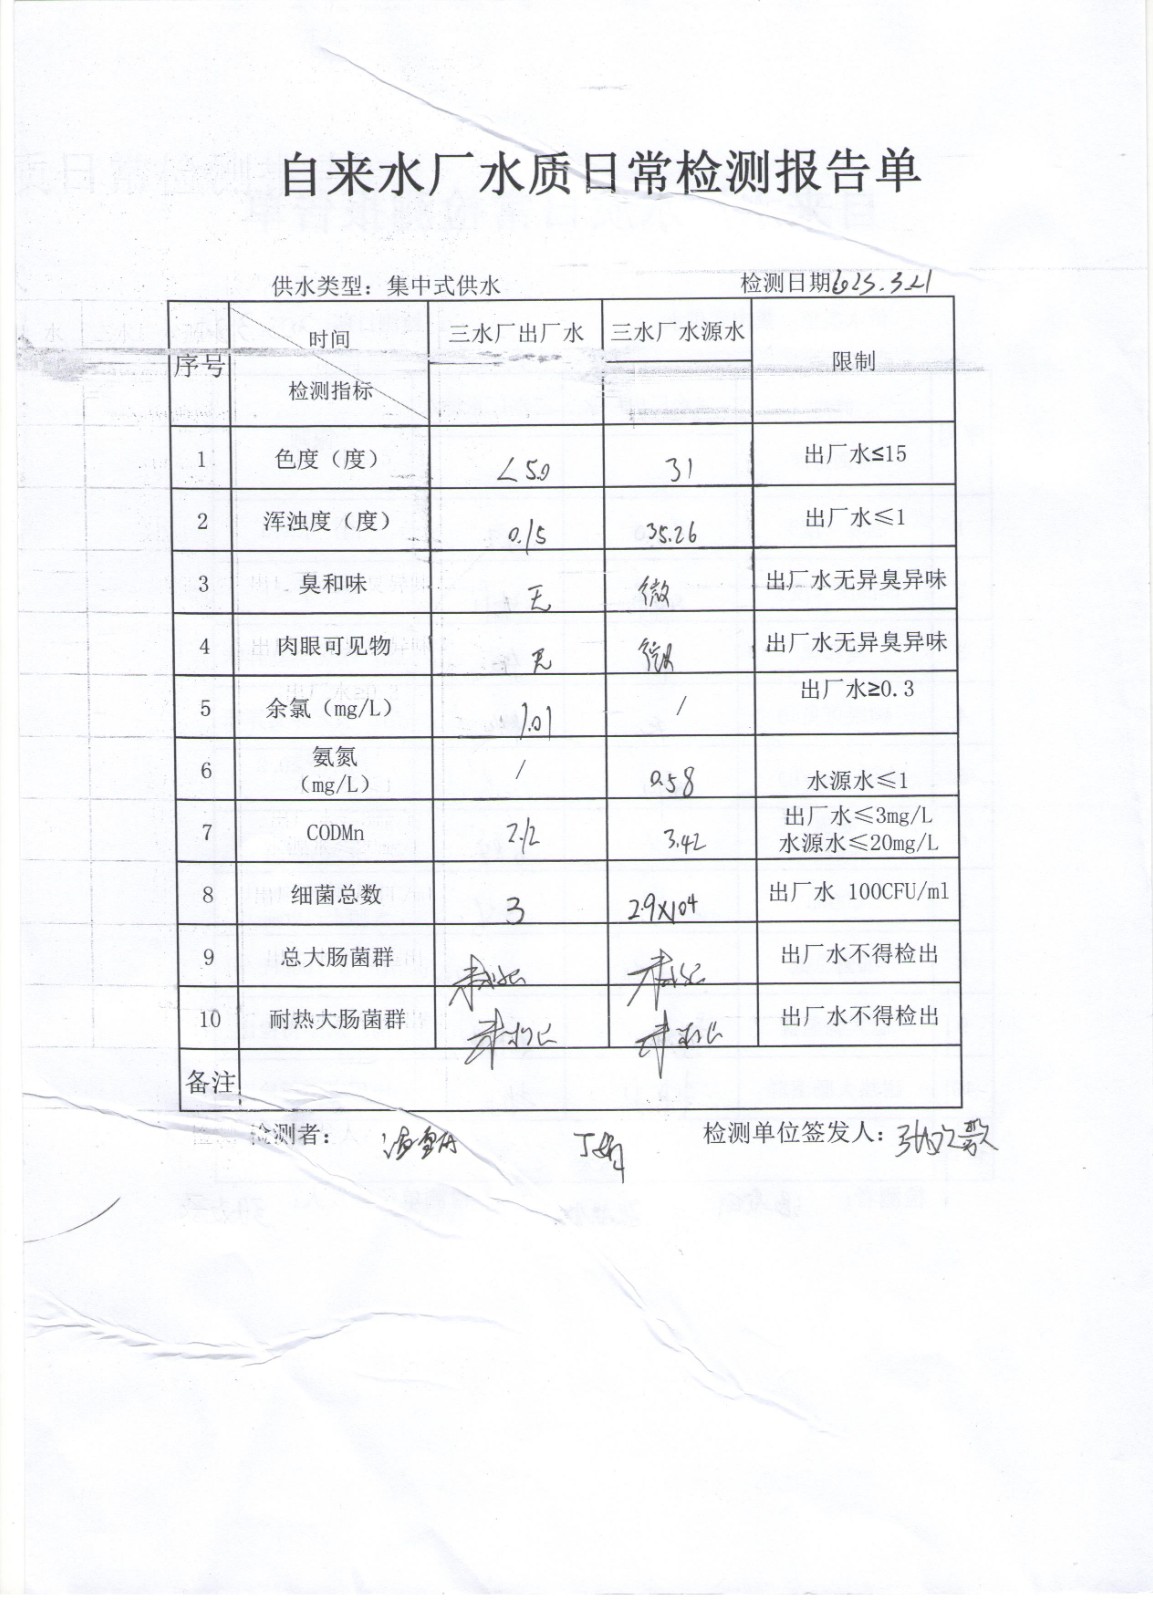 自来水厂水质日常检测报告单
供水类型：集中式供水 检测日期2025.3.21
序号 时间 检测指标 三水厂出厂水 三水厂水源水 限制
1 色度（度） <5.0 31 出厂水≤15
2 浑浊度（度） 0.15 35.26 出厂水≤1
3 臭和味 无 微 出厂水无异臭异味
4 肉眼可见物 无 微 出厂水无异臭异味
5 余氯（mg/L） 1.01 / 出厂水≥0.3
6 氨氮（mg/L） / 0.58 水源水≤1
7 CODMn 2.12 3.42 出厂水≤3mg/L 水源水≤20mg/L
8 细菌总数 3 2.9×10⁴ 出厂水 100CFU/ml
9 总大肠菌群 未检出 未检出 出厂水不得检出
10 耐热大肠菌群 未检出 未检出 出厂水不得检出
备注
检测者： 丁娟 检测单位签发人：